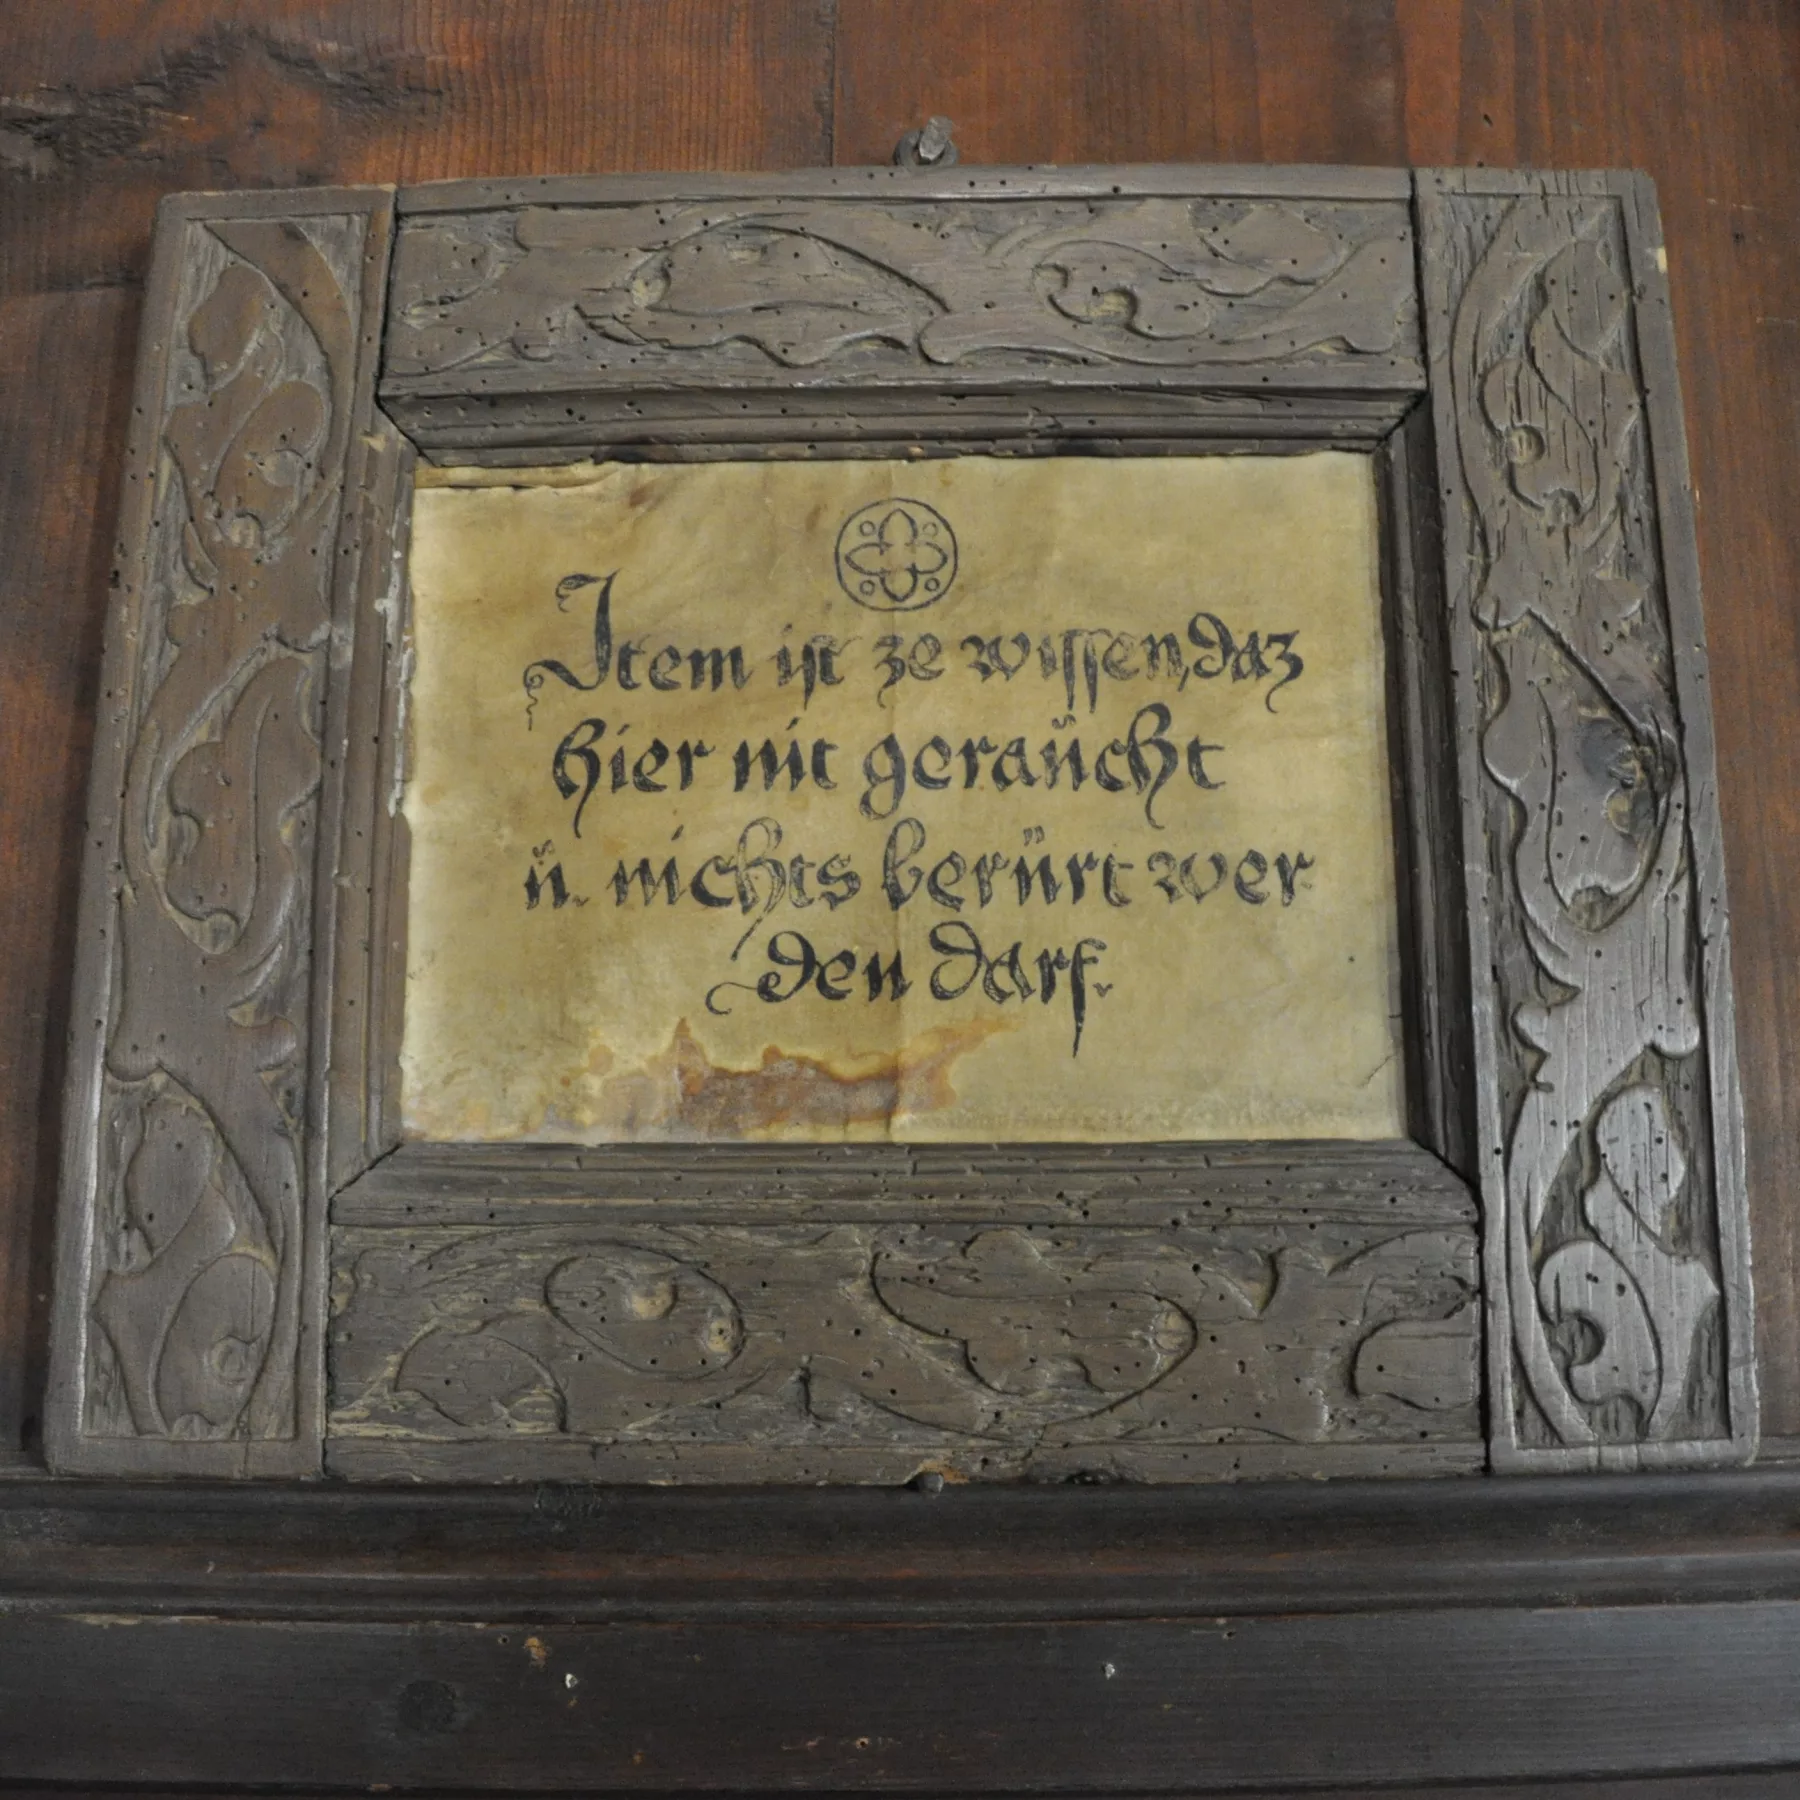 Item ist ze wissen, daz
hier nit geraücht
ü. nichts berürt wer
den darf.